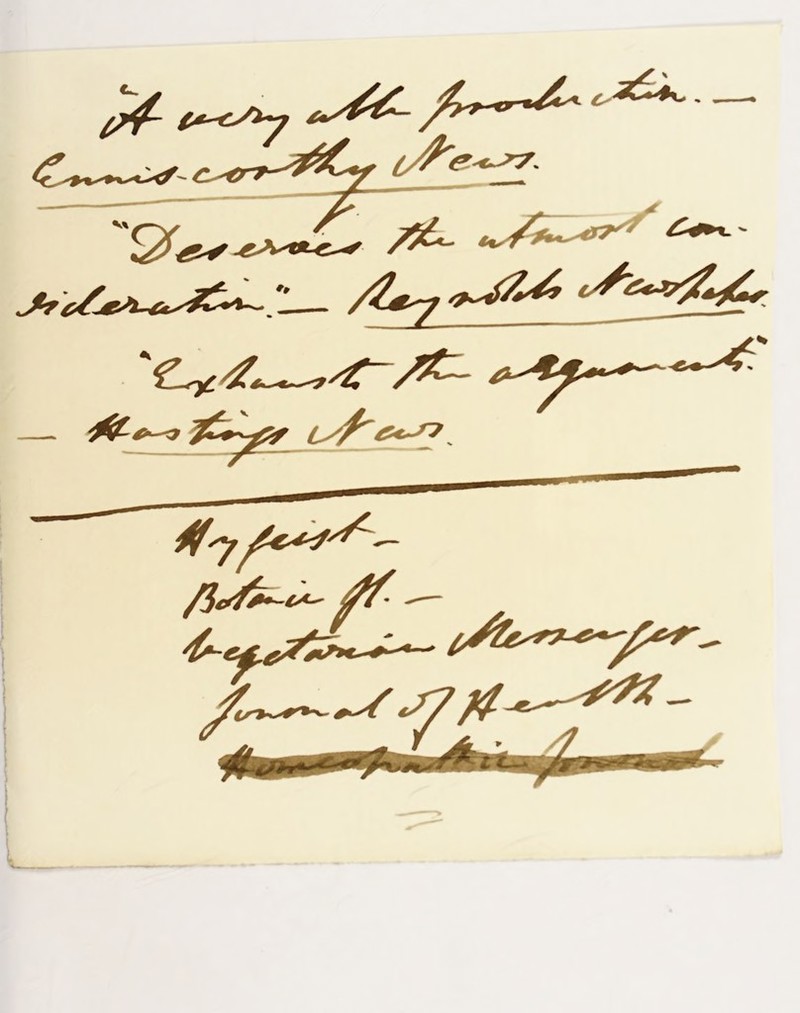 "A very able production. —
Ennis-corthy News.
"Deserves the utmost con-
sideration". — Reynolds Newspaper.
"Exhausts the arguments".
— Hastings News.
Hygeist —
Botanic Jl. —
Vegetarian Messenger —
Journal of Health —
Homeopathic Journal